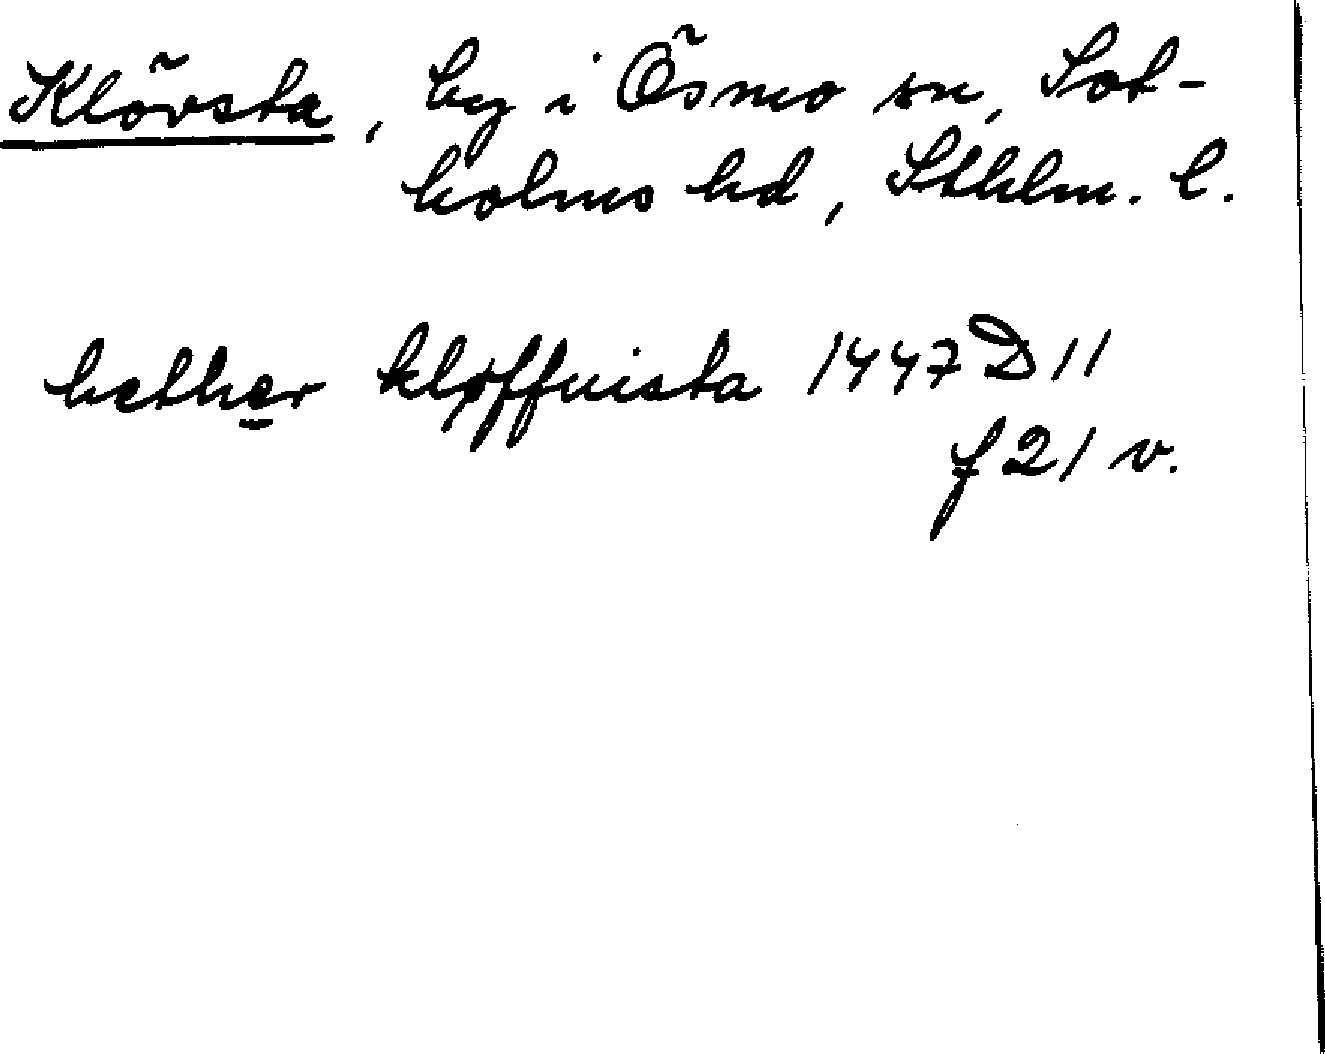 Klövsta, by i Ösmo sn, Sot-
holms hd, Sthlm. l.
hether kløffuista 1447 D 11
f 21 v.